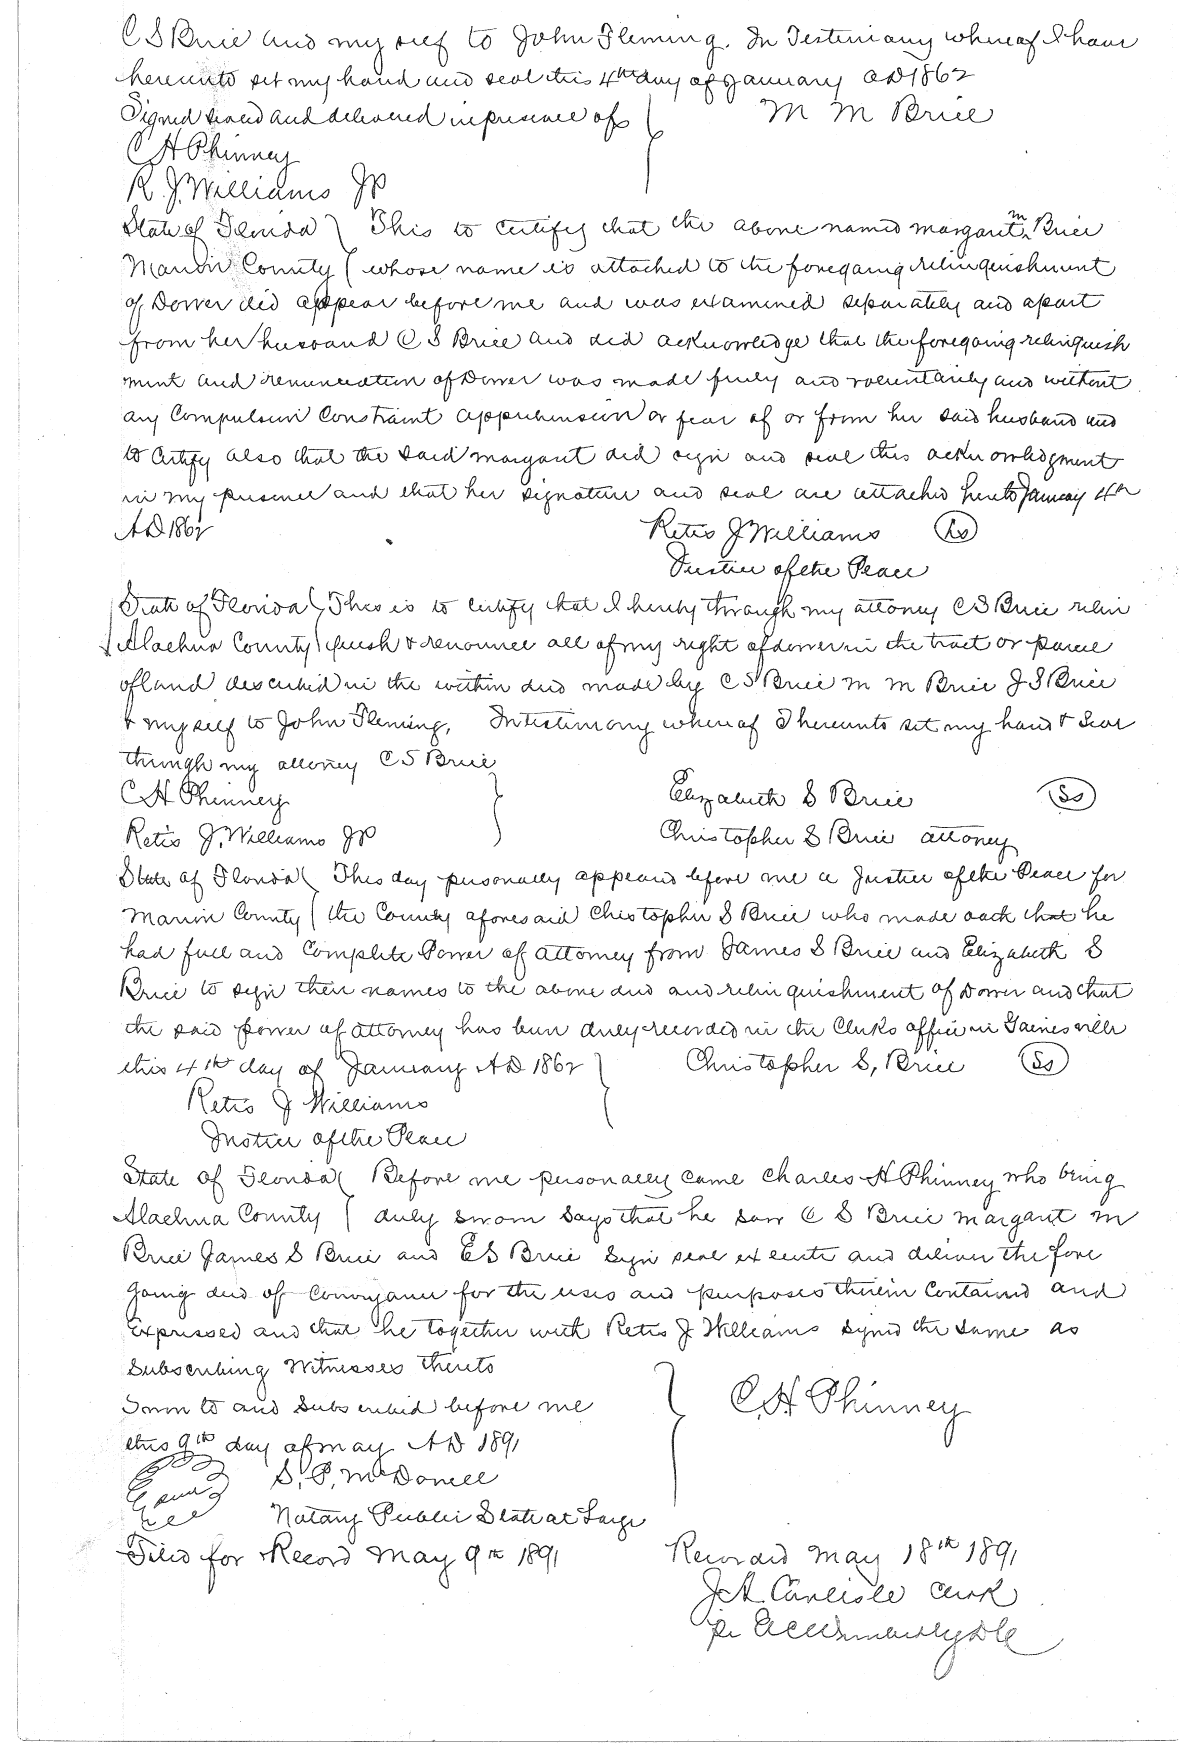 C S Brice and my self to John Fleming. In Testimony whereof I have
hereunto set my hand and seal this 4th day of January AD 1862
Signed sealed and delivered in presence of M M Brice
C H Phinney
R. J. Williams JP
State of Florida } This to certify that the above named Margaret M Brice
Marion County ( whose name is attached to the foregoing relinquishment
of Dower did appear before me and was examined separately and apart
from her husband C S Brice and did acknowledge that the foregoing relinquish
ment and renunciation of Dower was made freely and voluntarily and without
any Compulsion Constraint apprehension or fear of or from her said husband and
to Certify also that the said Margaret did sign and seal this acknowledgment
in my presence and that her signature and seal are attached hereto January 4th
AD 1862 Retis J Williams (LS)
Justice of the Peace
State of Florida ( This is to certify that I hereby through my attorney C S Brice relin
Alachua County ) quish & renounce all of my right of dower in the tract or parcel
of land described in the within deed made by C S Brice M M Brice J S Brice
& myself to John Fleming. In testimony whereof I hereunto set my hand & Seal
through my attorney C S Brice
C H Phinney Elizabeth S Brice (Ss)
Retis J. Williams JP Christopher S Brice attorney
State of Florida ( This day personally appeared before me a Justice of the Peace for
Marion County ( the County aforesaid Christopher S Brice who made oath that he
had full and Complete Power of attorney from James S Brice and Elizabeth S
Brice to sign their names to the above deed and relinquishment of Dower and that
the said power of attorney has been duly recorded in the Clerks office in Gainesville
this 4th day of January AD 1862 Christopher S. Brice (Ss)
Retis J Williams
Justice of the Peace
State of Florida ( Before me personally came Charles H Phinney who being
Alachua County ( duly sworn says that he saw C S Brice Margaret M
Brice James S Brice and E S Brice Sign seal execute and deliver the fore
going deed of Conveyance for the uses and purposes therein Contained and
Expressed and that he together with Retis J Williams signed the same as
Subscribing Witnesses thereto
Sworn to and Subscribed before me C. H Phinney
this 9th day of May AD 1891
S. P. McDonell
Notary Public State at Large
Filed for Record May 9th 1891 Recorded May 18th 1891
J A Carlisle Clerk